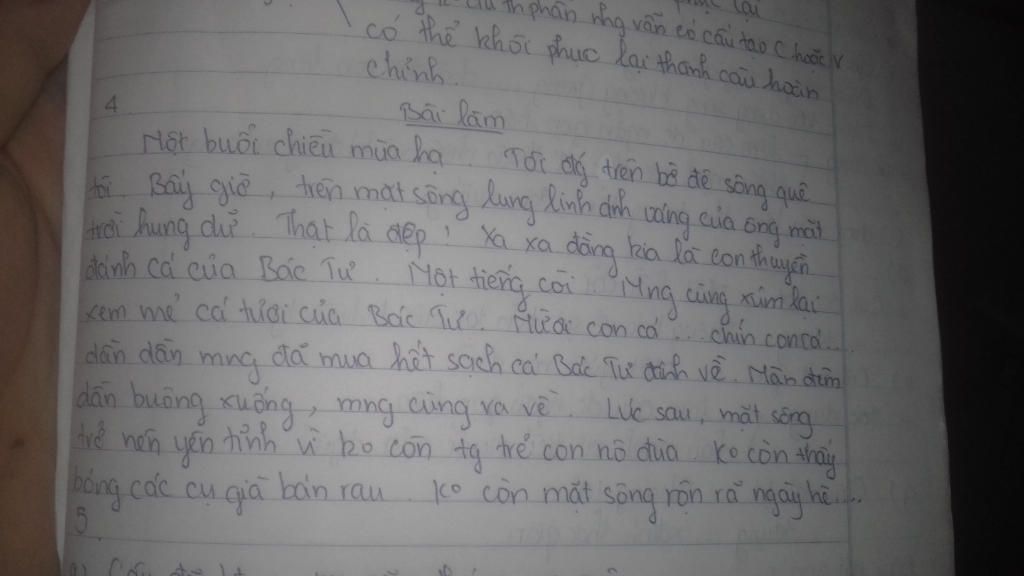 thphần nhg vẫn có cấu tạo C hoặc V
có thể khôi phục lại thành câu hoàn
chỉnh.
4
Bài làm
Một buổi chiều mùa hạ. Tôi đg trên bờ đê sông quê
tôi. Bấy giờ, trên mặt sông lung linh ánh vàng của ông mặt
trời hung dữ. Thật là đẹp! Xa xa đằng kia là con thuyền
đánh cá của Bác Tư. Một tiếng còi. Mng cùng xúm lại
xem mẻ cá tươi của Bác Tư. Mười con cá... chín con cá...
dần dần mng đã mua hết sạch cá Bác Tư đánh về. Màn đêm
dần buông xuống, mng cùng ra về. Lúc sau, mặt sông
trở nên yên tĩnh vì ko còn tg trẻ con nô đùa. Ko còn thấy
bóng các cụ già bán rau. Ko còn mặt sông rộn rã ngày hè....
5.